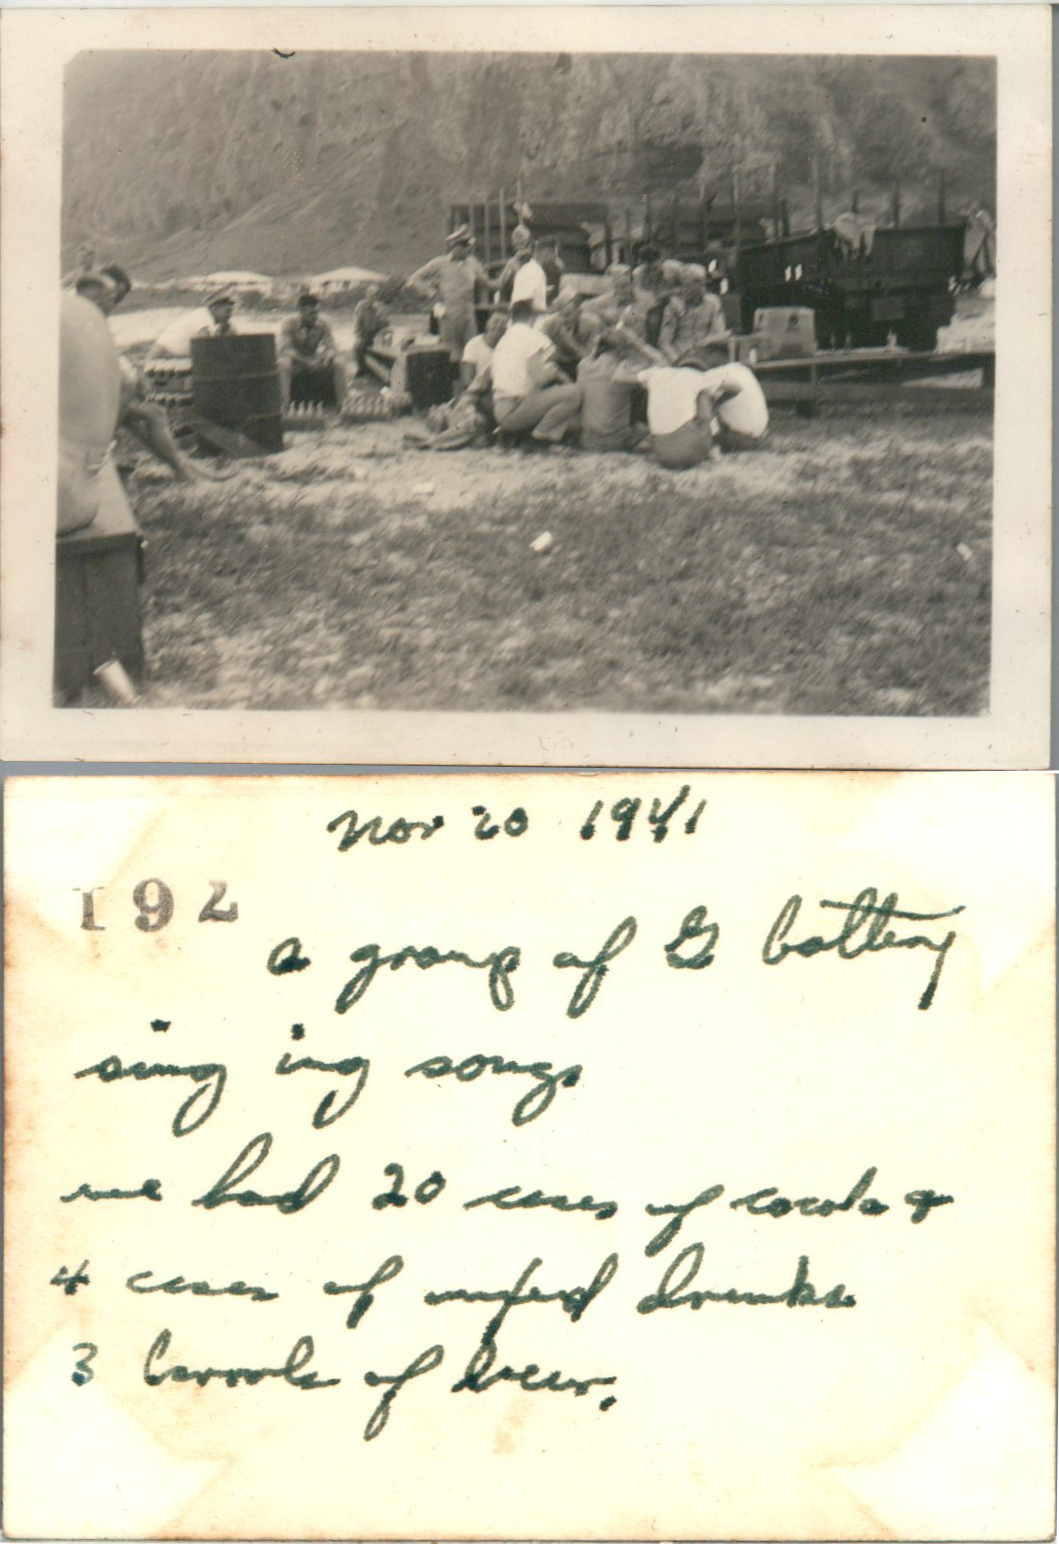 Nov 20 1941
192
a group of G battery
sing ing songs
we had 20 cases of cocola &
4 cases of mixed drinks
3 barrols of beer.